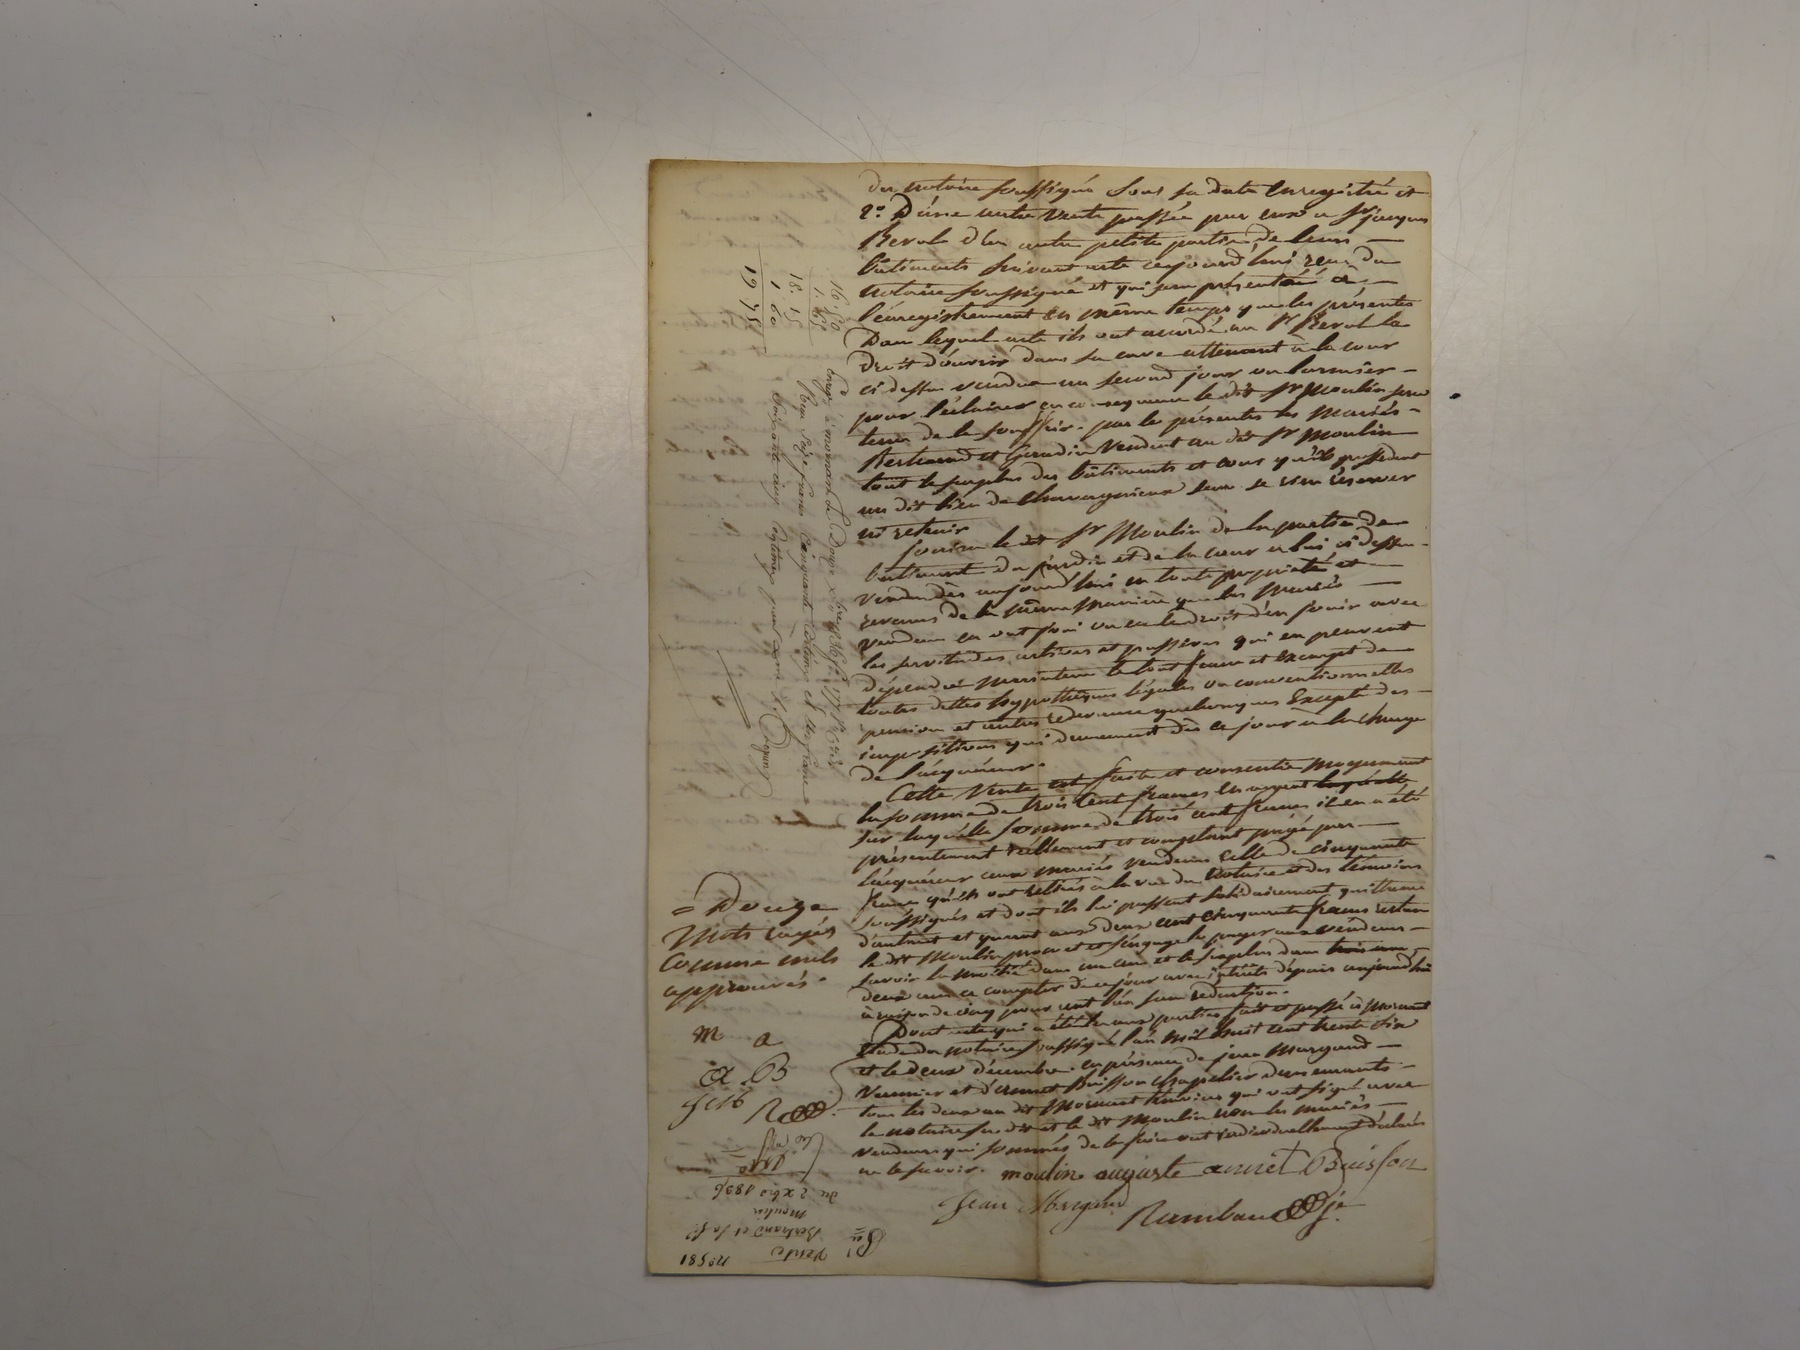 du notaire soussigné sous sa date Enregistré et
2.° D'une autre Vente passée par eux a Sr jacques
Berol d'un autre petite partie de leurs
bâtiments suivant acte cejourd'hui reçu du
notaire soussigné et qui sera présenté a
l'enregistrement en même temps que les présentes
Dans lequel acte ils ont accordé au Sr Berol le
droit d'ouvrir dans sa cave attenant à la cour
ci dessus vendue un second jour ou larmier
pour l'éclairer en conséquence le dit Sr Moulin sera
tenu de le souffrir. par les présentes les Mariés
Bertrand et Girardin Vendent au dit Sr Moulin
tout le surplus des bâtiments et cour qu'ils possèdent
au dit lieu de Chavagnieux sans se rien réserver
ni retenir
Jouira le dit Sr Moulin de la partie de
bâtiment du jardin et de la cour a lui ci dessus
vendu dès aujourd'hui en toute propriété et
revenus de la même Maniere que les Mariés
Vendeurs en ont joui ou eu le droit d'en jouir avec
les servitudes actives et passives qui en peuvent
dépendre maintenu le tout franc et exempt de
toutes dettes hypothèques légales ou conventionnelles
pension et autres redevance quelconques Excepté des
impositions qui demeurent dès ce jour à la charge
de l'acquéreur.
Cette Vente est faite et consentie Moyennant
la somme de trois Cent francs en argent laquelle
sur laquelle somme de trois cent francs il en a été
présentement réellement et comptant payé par
l'acquéreur aux mariés vendeurs celle de cinquante
francs qu'ils ont retirés à la vue du Notaire et des témoins
soussignés et dont ils lui passent solidairement quittance
d'autant et quant aux deux cent cinquante francs restant
le dit Moulin promet et s'engage le payer aux vendeurs
savoir la moitié dans un an et le surplus dans trois ans
deux ans a compter de ce jour avec intérêts depuis aujourd'hui
à raison de cinq pour cent l'an sans réduction.
Dont acte qui a été lu aux parties fait et passé à Mornant
Etude du notaire soussigné l'an mil huit cent trente six
et le deux décembre. en présence de jean Margand
Vannier et d'annet Buisson Chapelier demeurants
tous les deux au dit Mornant témoins qui ont signé avec
le notaire susdit et le dit Moulin non les mariés
vendeurs qui sommés de le faire ont individuellement déclaré
ne le savoir. moulin auguste annet Buisson
Jean Margand
Rambaud
= Douze
Mots rayés
Comme nuls
approuvés.
m a
a B
16.50
1.65
18.15
1.60
19.75
Reçu Seize francs Cinquante Centimes
n.° 581
Vente
Bertrand et
Moulin
du 2 xbre 1836